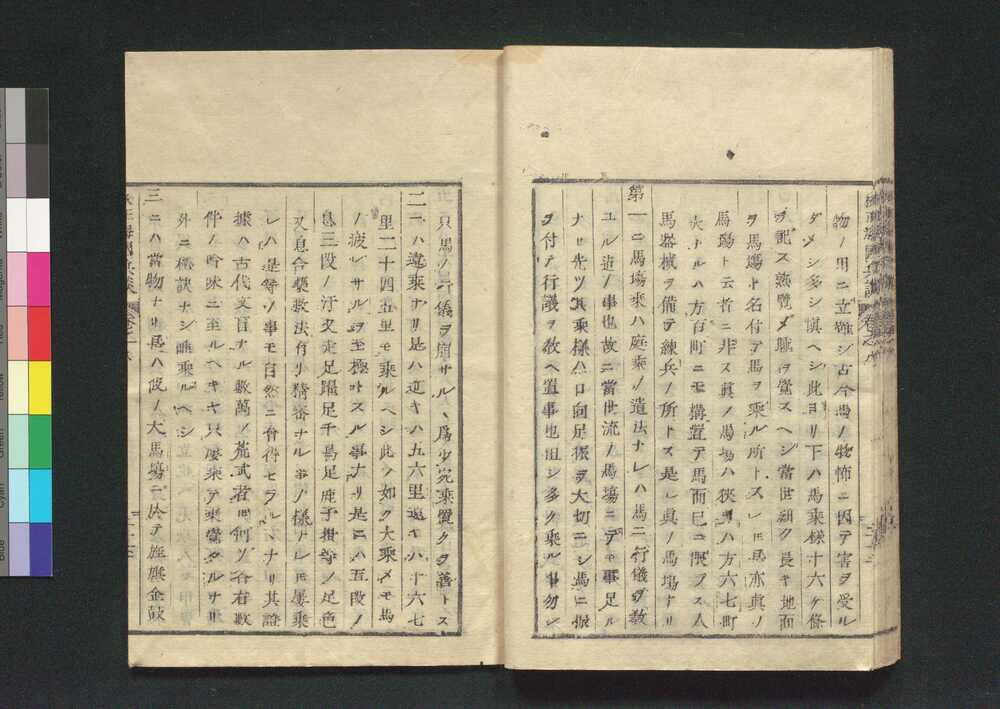 物ノ用ニ立難シ古今馬ノ物怖ニ因テ害ヲ受ル
ダメシ多シ慎ヘシ此ヨリ下ハ馬乗様十六ケ條
ヲ記ス熟覧メ賦ヲ覚スヘジ當世細ク長キ地面
ヲ馬場ト名付テ馬ヲ乗ル所トスレ𪜈馬亦真ノ
馬場ト云者ニ非ス真ノ馬場ハ狭キハ方六七町
大ナルハ方百町ニモ構置テ馬而已ニ限ラス人
馬器械ヲ備テ練兵ノ所トス是レ真ノ馬場ナリ
第一ニ馬場乗ハ庭乗ノ遺法ナレハ馬ニ行儀ヲ教
ユル迠ノ事也故ニ當世流ノ馬場ニテモ事足ル
ナリ先ツ其乗様ハ口向足振ヲ大切ニシ馬ニ振
ヲ付テ行議ヲ教ヘ置事也但シ多ク乗ル事勿レ
只馬ノ行儀ヲ崩サルヽ為少完乗置クヲ善トス
二ニハ遠乗ナリ是ハ近キハ五六里遠キハ十六七
里二十四五里モ乗ルヘシ此ノ如ク大乗メモ馬
ノ疲レサルヲ至極トスル事ナリ是ニハ五段ノ
息三段ノ汗又走足躍足千鳥足鹿子損等ノ足色
又息合薬救法有リ猜審ナル事ノ様ナレ𪜈屡乗
レハ是等ノ事モ自然ニ會得セラルヽナリ其證
據ハ古代文盲ナル數萬ノ荒武者𪜈何ソ各右數
件ノ吟味ニ至ルヘキヤ只屡乗テ乗覚タルナリ
外ニ極訣ナシ唯乗ルヘシ
三ニハ當物ナリ是ハ彼ノ大馬場ニ於テ旌旗金鼓